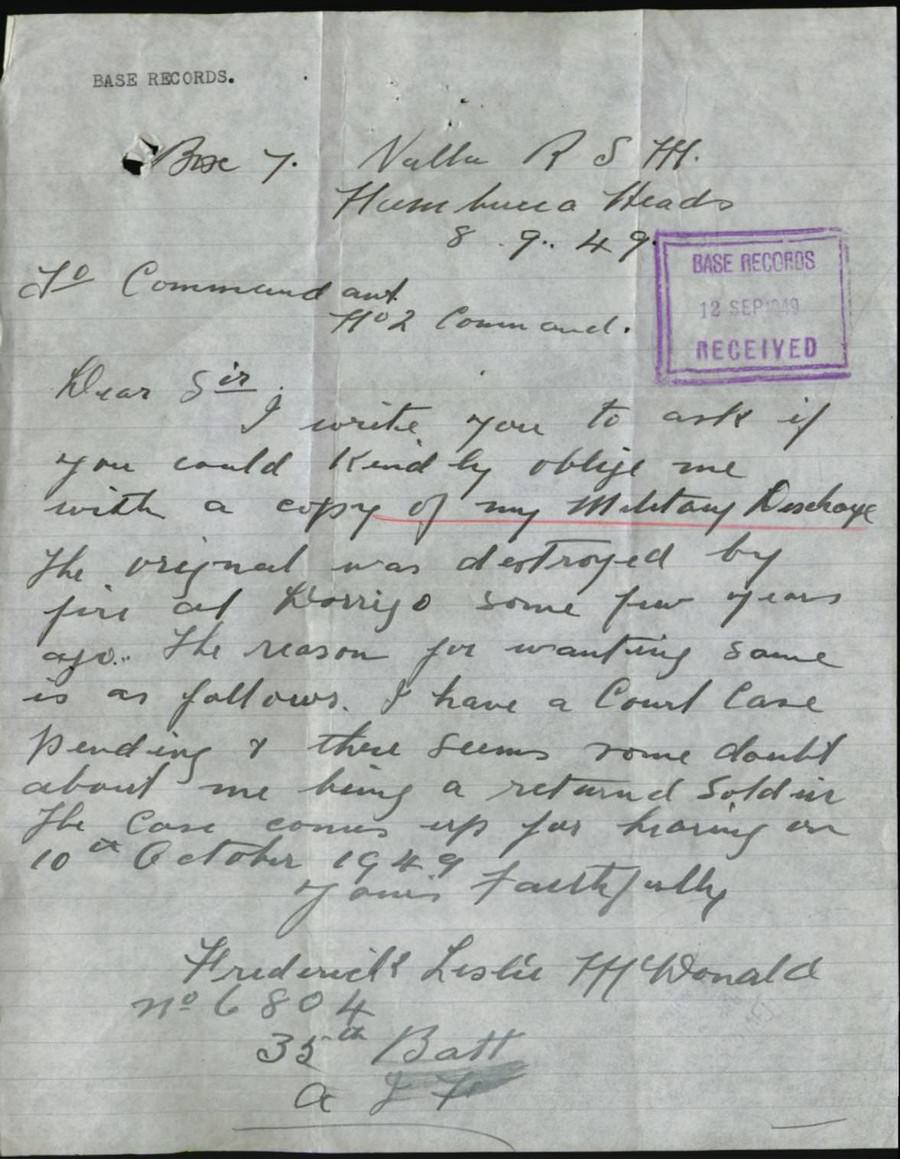 BASE RECORDS.
Box 7. Valla R S M.
Nambucca Heads
8. 9.. 49.
BASE RECORDS
12 SEP 1949
RECEIVED
To Commandant
No 2 Command.
Dear Sir.
I write you to ask if
you could kindly oblige me
with a copy of my Military Discharge
The orignal was destroyed by
fire at Dorrigo some few years
ago.. The reason for wanting same
is as follows. I have a Court Case
pending & there seems some doubt
about me being a returnd Soldier
The Case comes up for hearing on
10th October 1949
Yours Faithfully
Frederick Leslie McDonald
No 6804
35th Batt
A I F